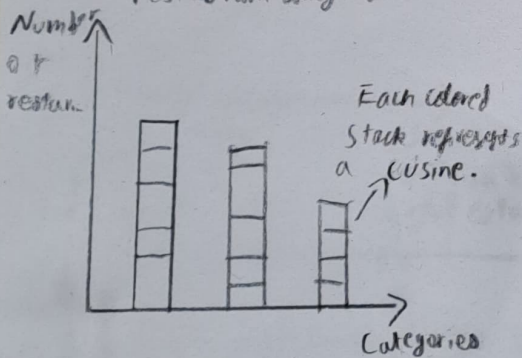 Number
of
restau..
Each colored
stack represents
a cusine.
Categories